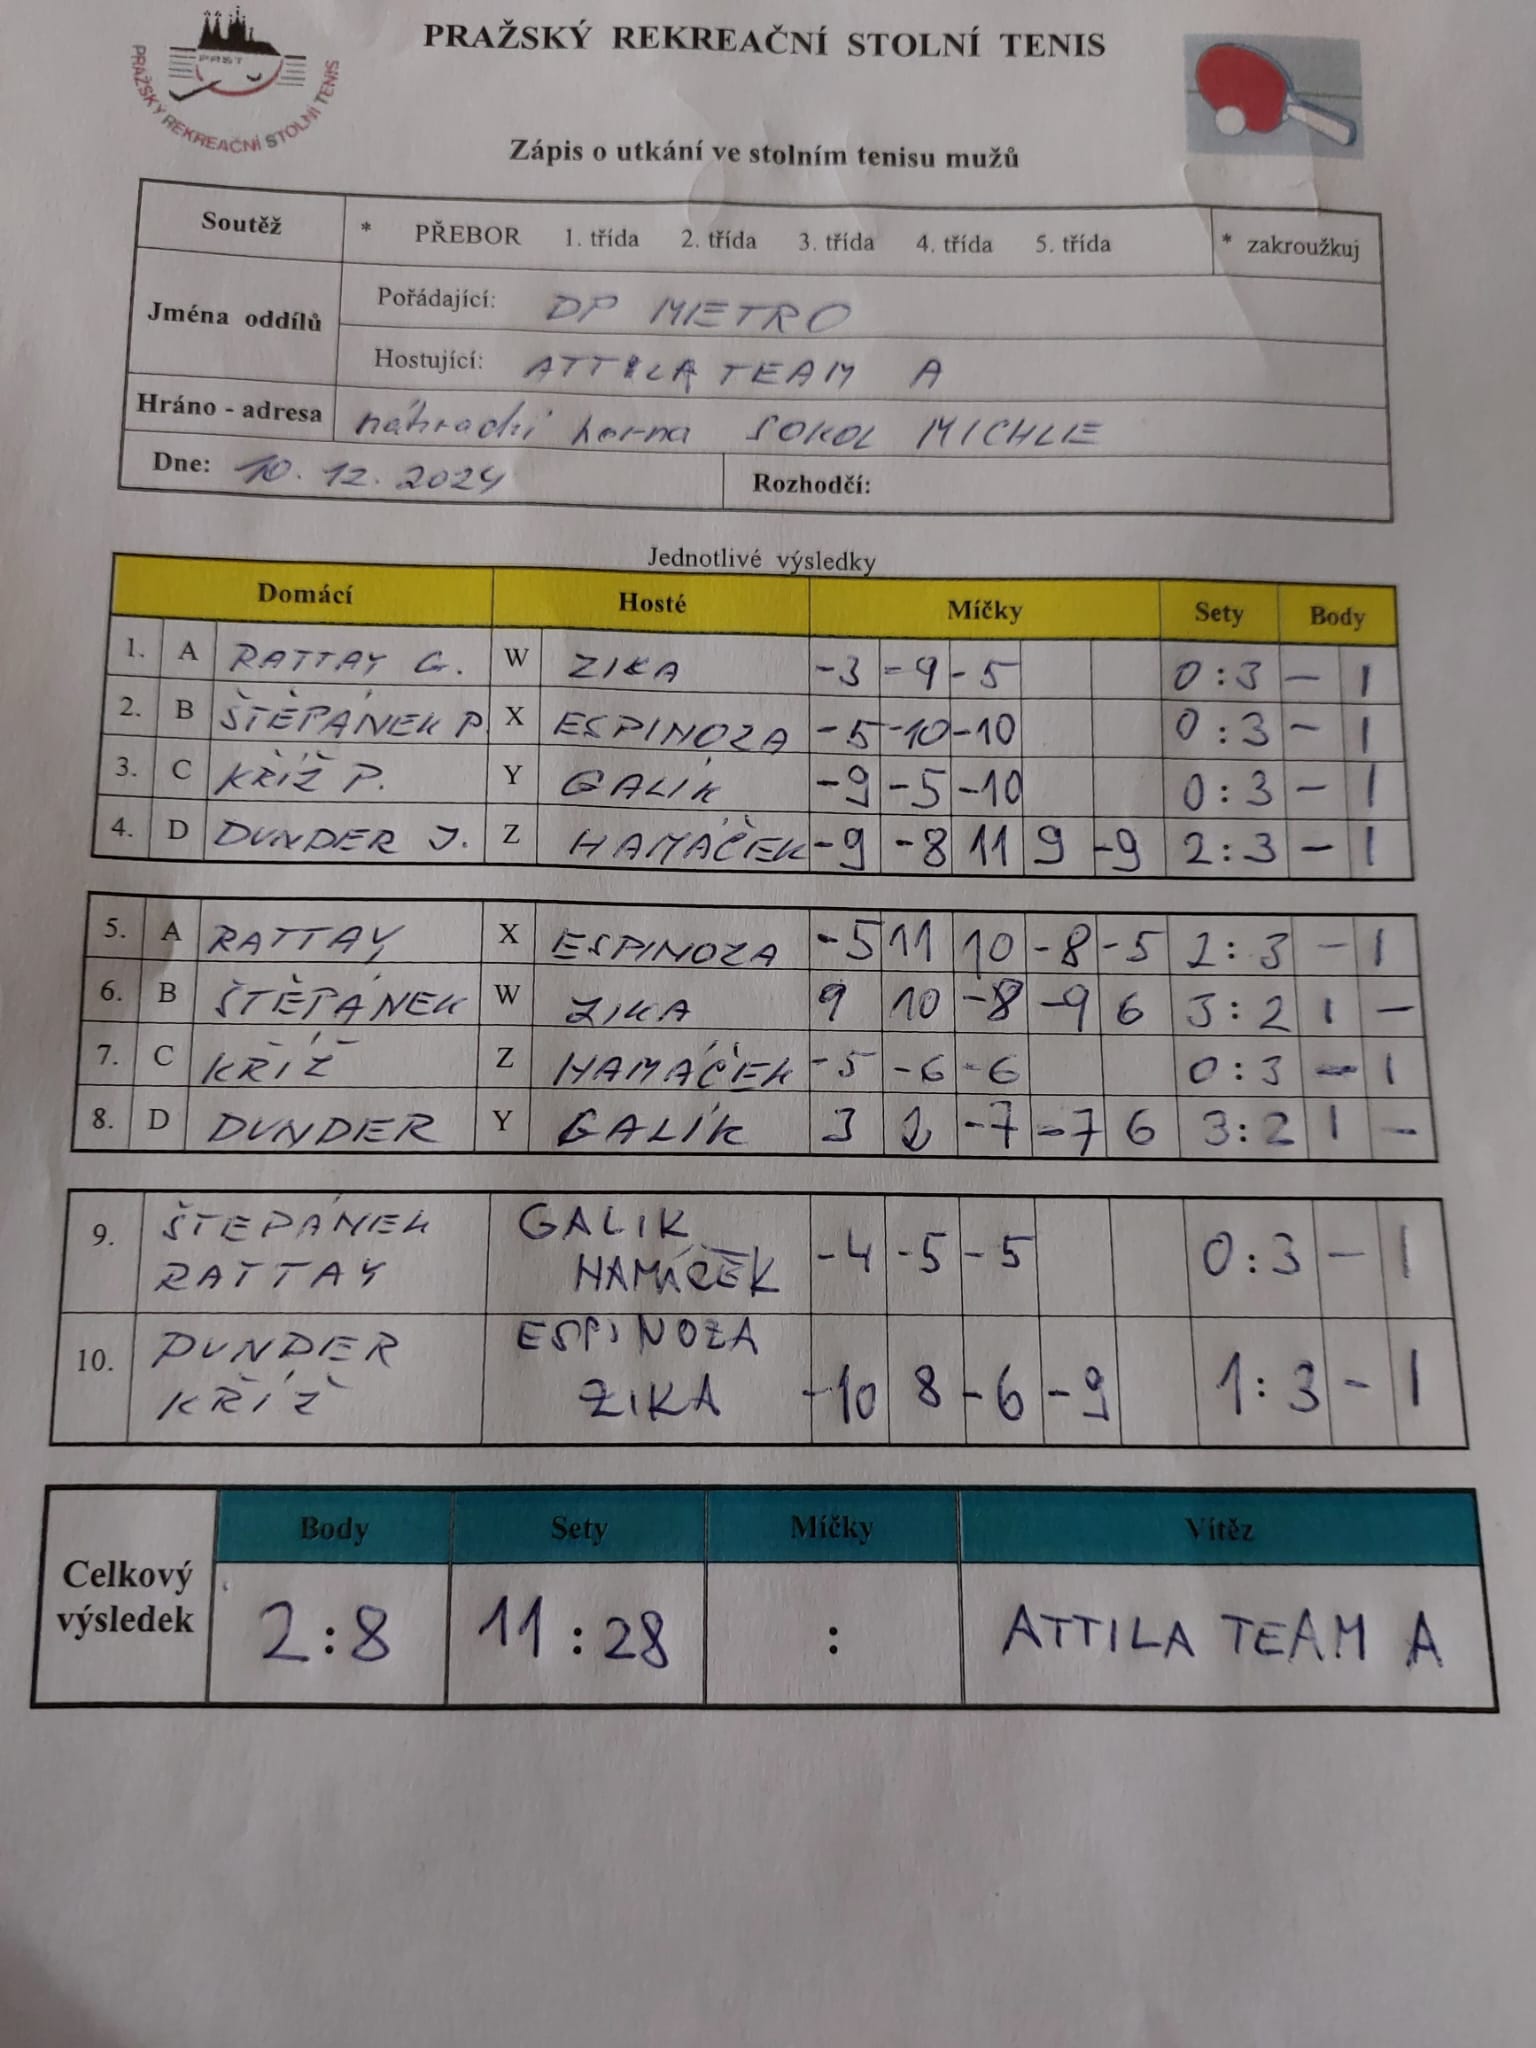 PRAŽSKÝ REKREAČNÍ STOLNÍ TENIS
PRST
PRAŽSKÝ REKREAČNÍ STOLNÍ TENIS
Zápis o utkání ve stolním tenisu mužů
Soutěž * PŘEBOR 1. třída 2. třída 3. třída 4. třída 5. třída * zakroužkuj
Jména oddílů
Pořádající: DP METRO
Hostující: ATTILA TEAM A
Hráno - adresa náhradní herna SOKOL MICHLE
Dne: 10. 12. 2024 Rozhodčí:
Jednotlivé výsledky
Domácí Hosté Míčky Sety Body
1. A RATTAY G. W ZIKA -3 -9 -5 0:3 - 1
2. B ŠTĚPÁNEK P. X ESPINOZA -5 -10 -10 0:3 - 1
3. C KŘÍŽ P. Y GALÍK -9 -5 -10 0:3 - 1
4. D DUNDER J. Z HAMÁČEK -9 -8 11 9 -9 2:3 - 1
5. A RATTAY X ESPINOZA -5 11 10 -8 -5 2:3 - 1
6. B ŠTĚPÁNEK W ZIKA 9 10 -8 -9 6 3:2 1 -
7. C KŘÍŽ Z HAMÁČEK -5 -6 -6 0:3 - 1
8. D DUNDER Y GALÍK 3 2 -7 -7 6 3:2 1 -
9. ŠTEPÁNEK GALIK -4 -5 -5 0:3 - 1
RATTAY HAMÁČEK
10. DUNDER ESPINOZA -10 8 -6 -9 1:3 - 1
KŘÍŽ ZIKA
Body Sety Míčky Vítěz
Celkový výsledek 2:8 11:28 : ATTILA TEAM A